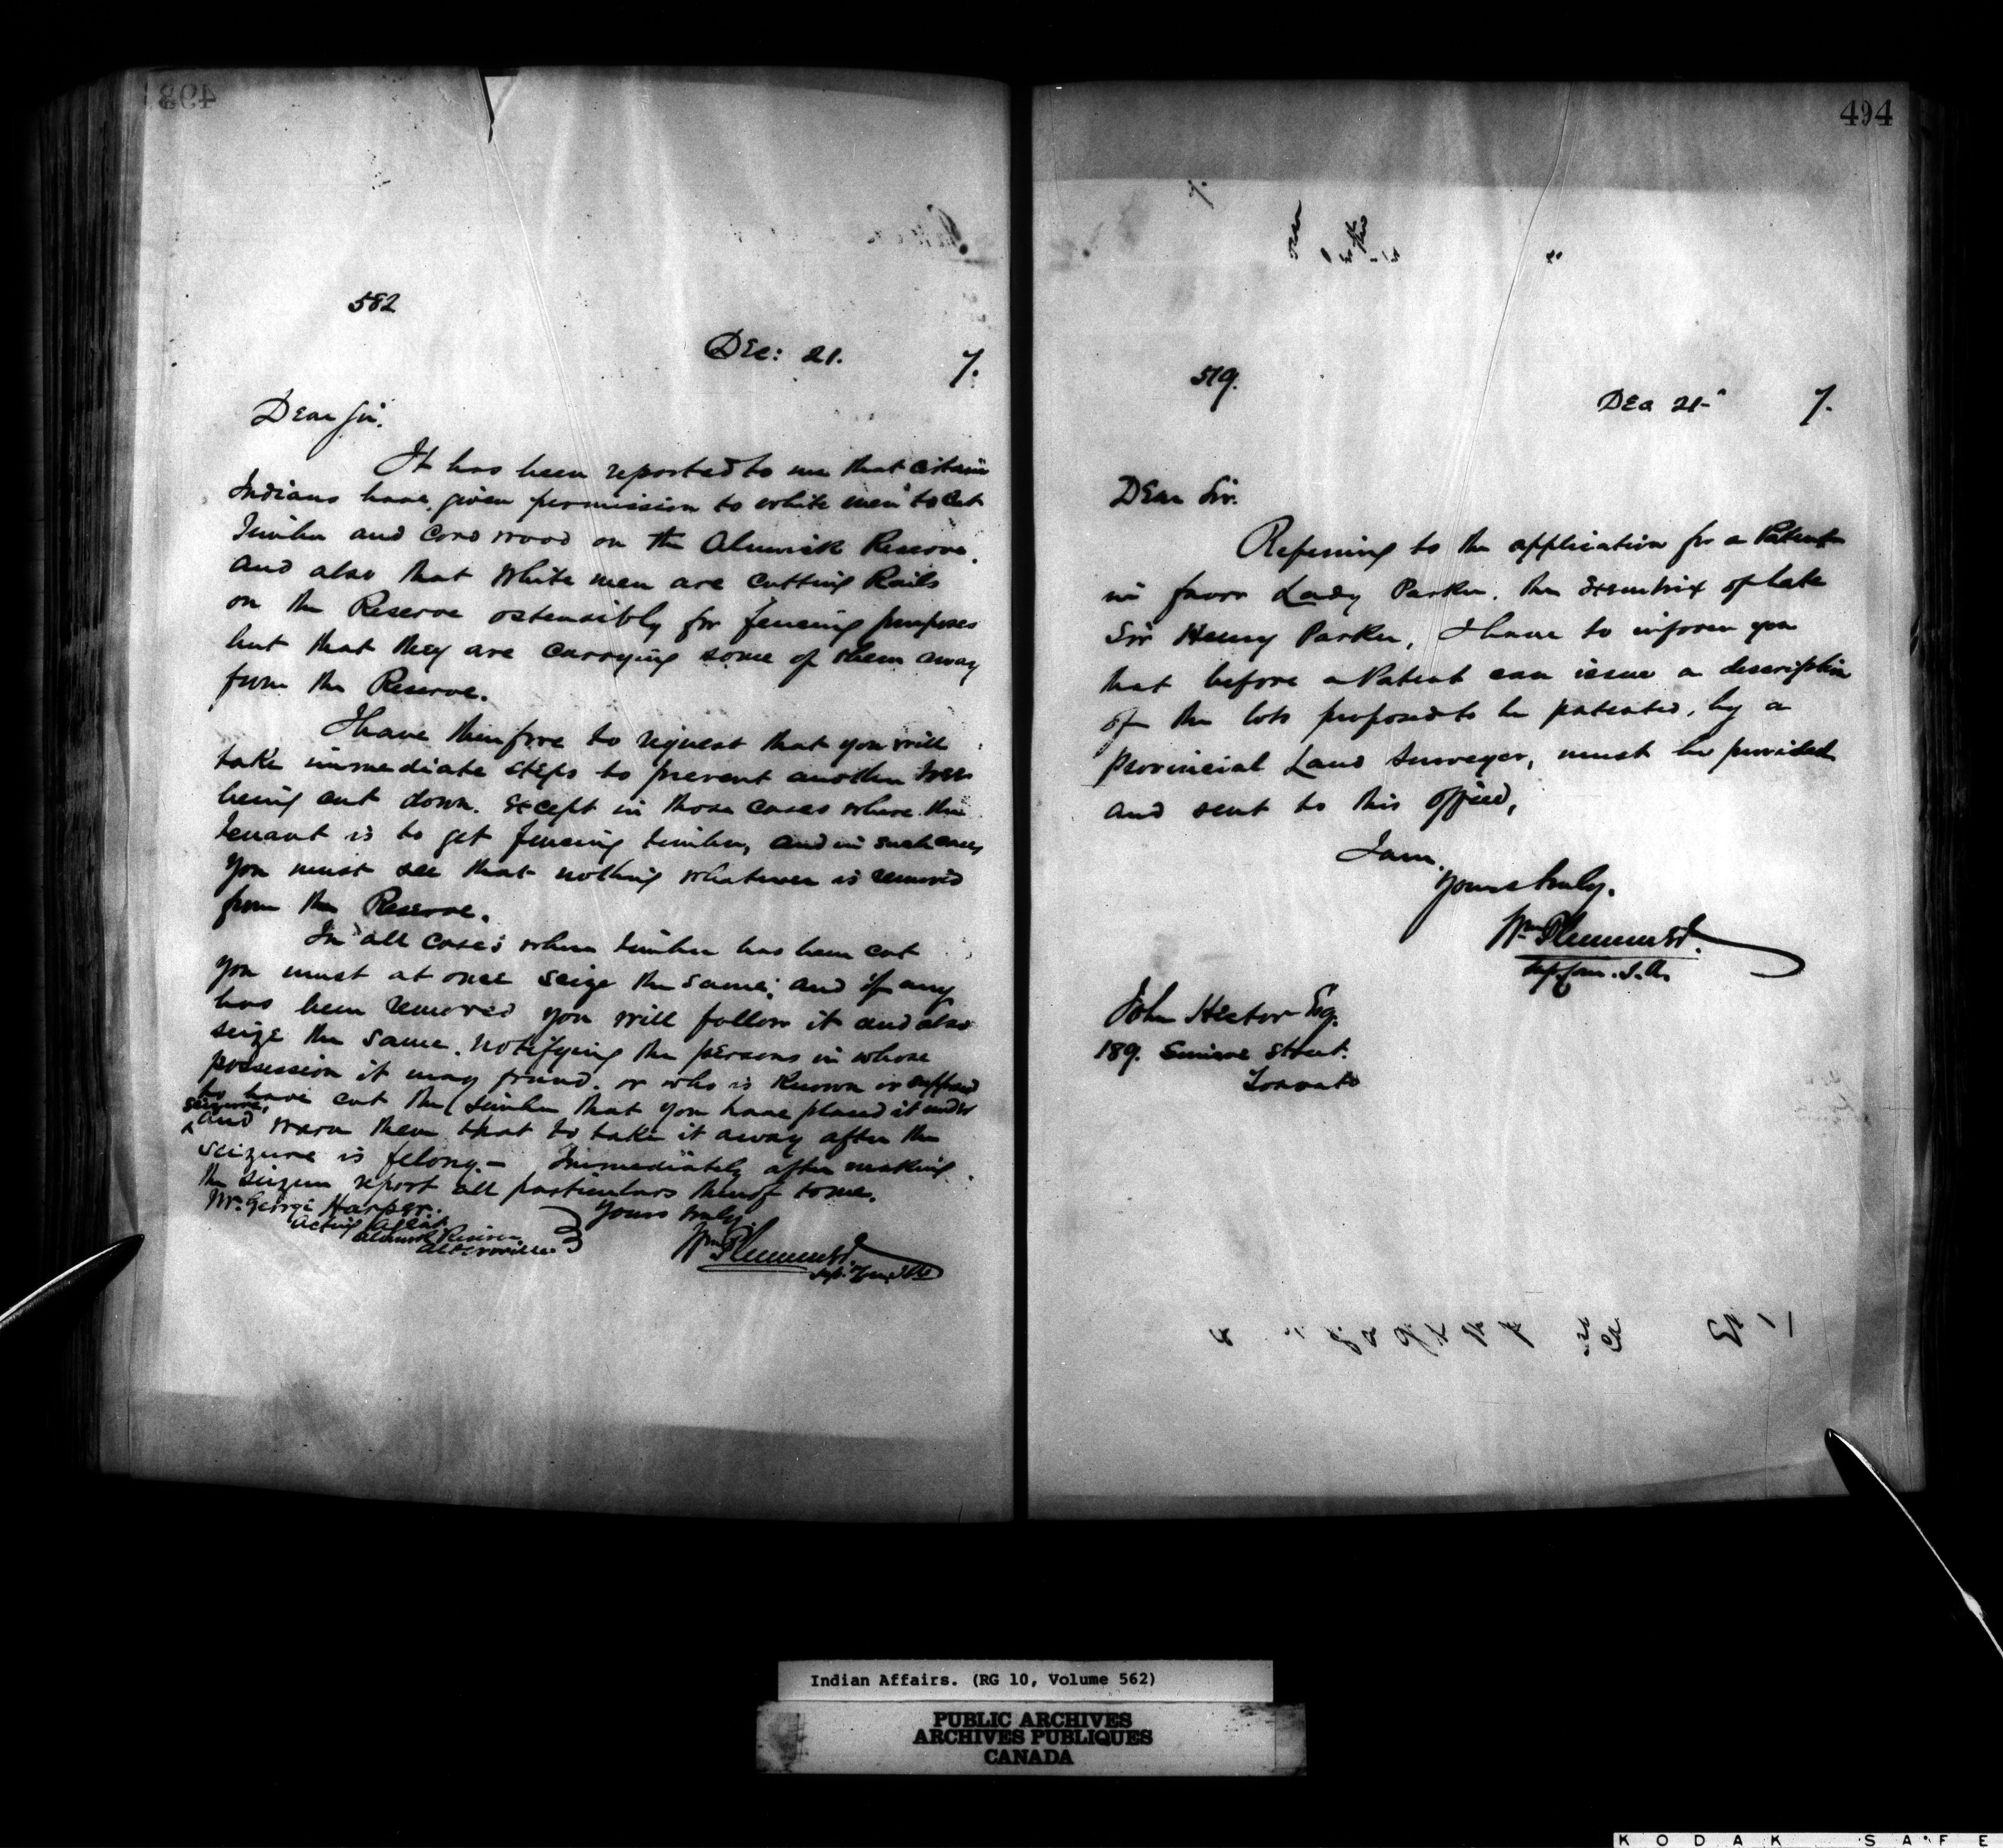 493
582
Dec: 21. 7.
Dear Sir.
It has been reported to me that certain
Indians have given permission to white men to cut
Timber and Cord wood on the Alnwick Reserve.
and also that white men are cutting Rails
on the Reserve ostensibly for fencing purposes
but that they are carrying some of them away
from the Reserve.
I have therefore to request that you will
take immediate steps to prevent another tree
being cut down. Except in those cases where the
tenant is to get fencing timber, and in such cases
you must see that nothing whatever is removed
from the Reserve.
In all cases where timber has been cut
you must at once seize the same; and if any
has been removed you will follow it and also
seize the same. Notifying the persons in whose
possession it may found. or who is known or supposed
to have cut the timber that you have placed it under
seizure,
and warn them that to take it away after the
seizure is felony.- Immediately after making
the seizure report all particulars thereof to me.
Mr. George Harper.
Yours truly
Acting Agent
Alnwick Reserve
Alderville
Wm Plummer
494
519.
Dec 21- 7.
Dear Sir.
Referring to the application for a Patent
in favor Lady Parker. the Executrix of late
Sir Henry Parker, I have to inform you
that before a Patent can issue a description
of the lots proposed to be patented, by a
Provincial Land Surveyor, must be provided
and sent to this office,
I am.
Yours truly.
Wm Plummer
John Hector Esq.
189. Simcoe Street.
Toronto
Indian Affairs. (RG 10, Volume 562)
PUBLIC ARCHIVES
ARCHIVES PUBLIQUES
CANADA
KODAK SAFE